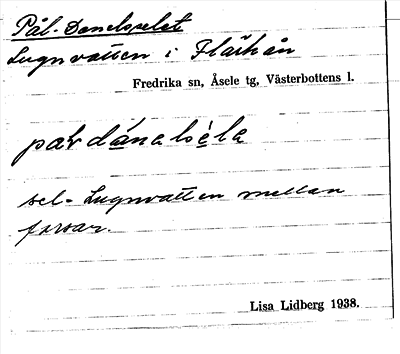 Pål-Danelsselet
Lugnvatten i Flärkån
Fredrika sn, Åsele tg, Västerbottens l.
sel = Lugnvatten mellan
forsar.
Lisa Lidberg 1938.